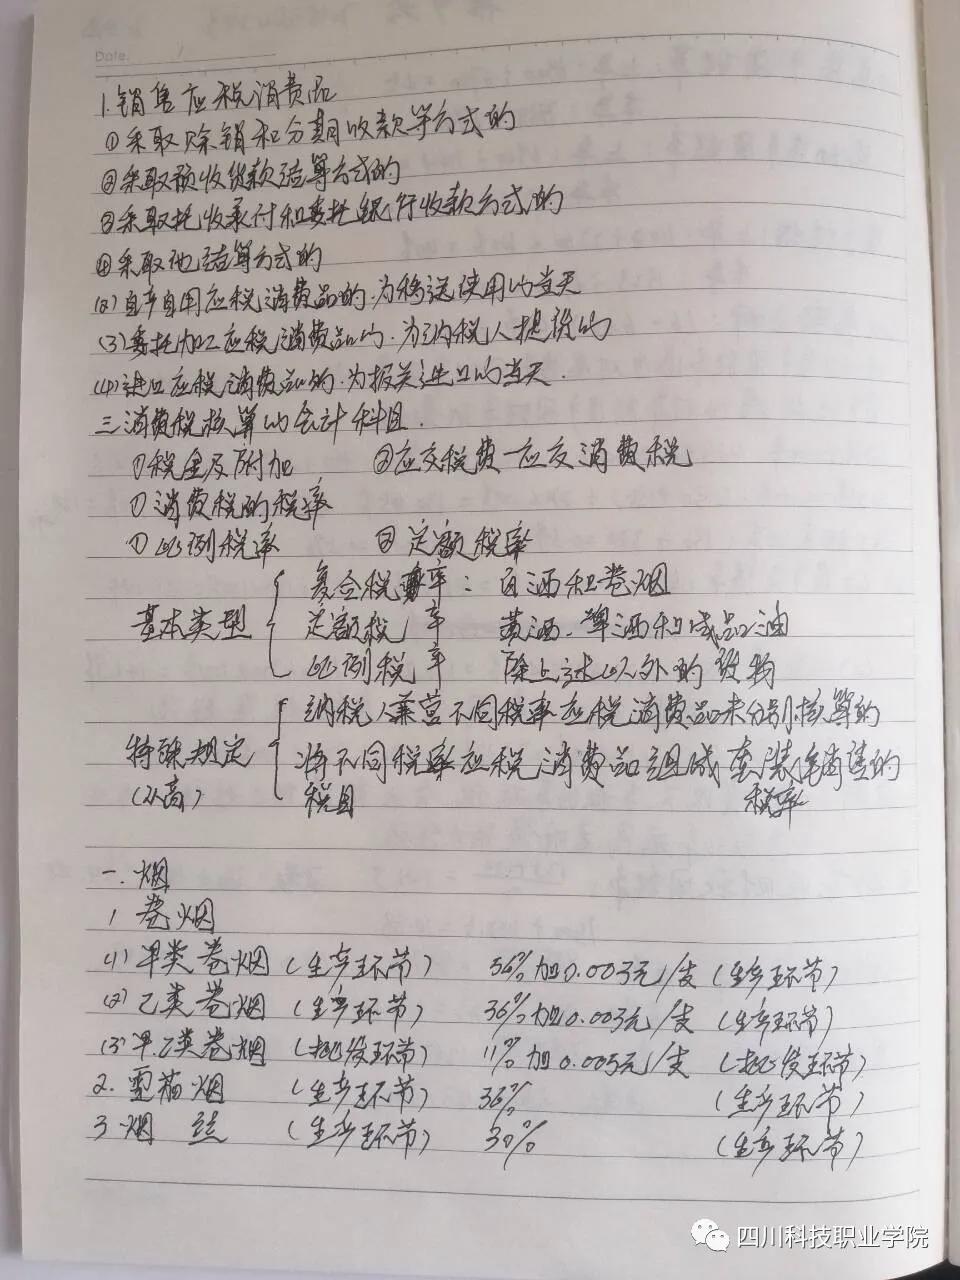 Date. /
1.销售应税消费品
①采取赊销和分期收款等方式的
②采取预收货款结算方式的
③采取托收承付和委托银行收款方式的
④采取他结算方式的
(2)自产自用应税消费品的.为移送使用的当天
(3)委托加工应税消费品的.为纳税人提货的
(4)进口应税消费品的.为报关进口的当天.
三消费税核算的会计科目.
①税金及附加 ②应交税费一应交消费税
①消费税的税率
①比例税率 ②定额税率
复合税率:白酒和卷烟
基本类型 定额税率 黄酒.啤酒和成品油
比例税率 除上述以外的货物
纳税人兼营不同税率应税消费品未分别核算的
特殊规定 将不同税率应税消费品组成套装销售的
(从高) 税目 税率
一.烟
1 卷烟
(1)甲类卷烟(生产环节) 56%加0.003元/支(生产环节)
(2)乙类卷烟(生产环节) 36%加0.003元/支(生产环节)
(3)甲.乙类卷烟(批发环节) 11%加0.005元/支(批发环节)
2.雪茄烟 (生产环节) 36% (生产环节)
3 烟 丝 (生产环节) 30% (生产环节)
四川科技职业学院